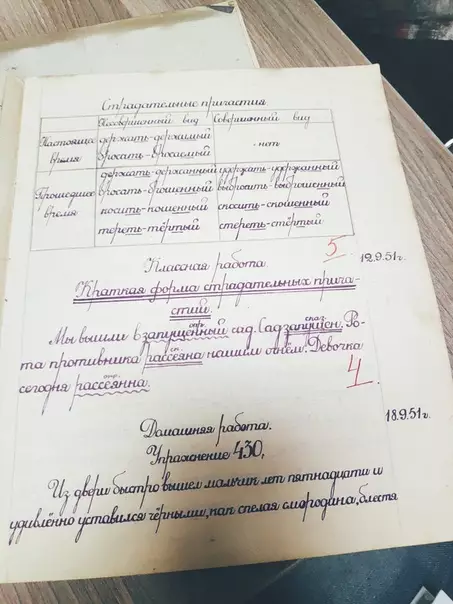 Страдательные причастия
Несовершенный вид Совершенный вид
Настоящее время держать-держаемый нет
бросать-бросаемый
Прошедшее время держать-держанный удержать-удержанный
бросать-брошенный выбросить-выброшенный
носить-ношенный сносить-сношенный
тереть-тёртый стереть-стёртый
5
Классная работа 12.9.51г.
Краткая форма страдательных прича-
стий.
опр. сказ.
Мы вышли в запущенный сад. Сад запущен. Ро-
та противника рассеяна нашим огнём. Девочка
сегодня рассеянна.
4
18.9.51г.
Домашняя работа.
Упражнение 430,
Из двери быстро вышел мальчик лет пятнадцати и
удивлённо уставился чёрными, как спелая смородина, блестя